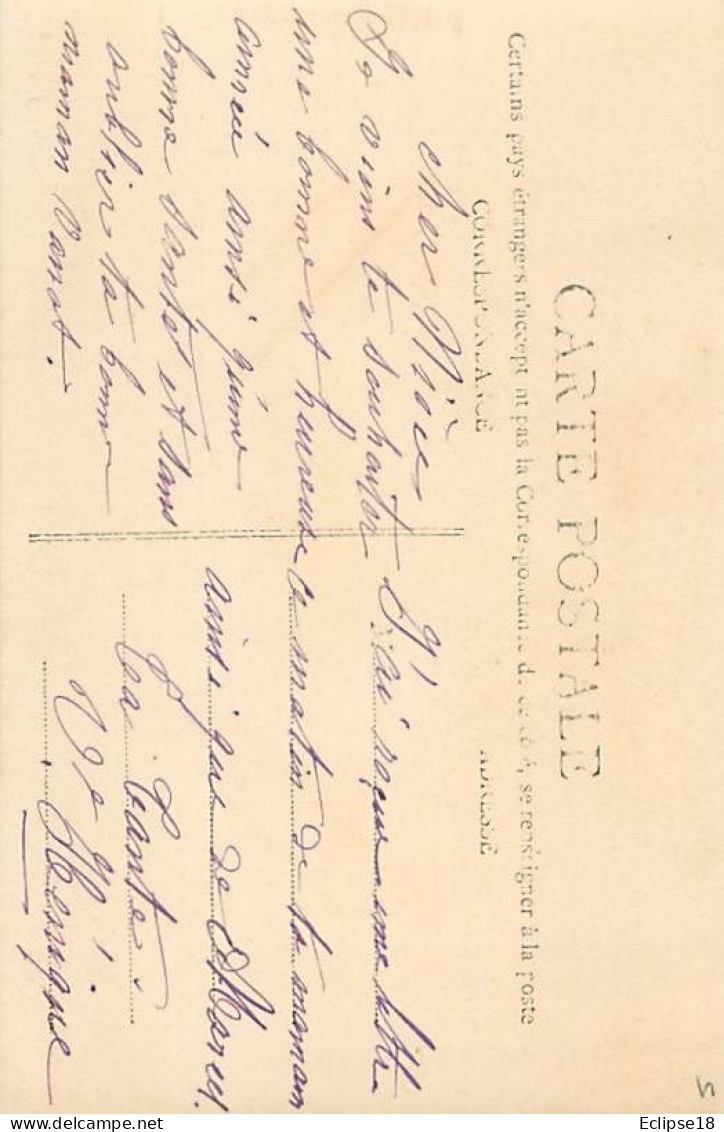 CARTE POSTALE
Certains pays étrangers n'acceptent pas la Correspondance de ce côté, se renseigner à la poste
CORRESPONDANCE
ADRESSE
cher Nièce
Je viens te souhaiter
une bonne et heureuse
année ainsi qu'une
bonne santét et sans
oublier ta bonne
maman
J'ai reçue une lettre
ce matin de ta maman
ainsi que de Marcel.
Ta Tante
Ve H.
5
Delcampe.net
Eclipse18